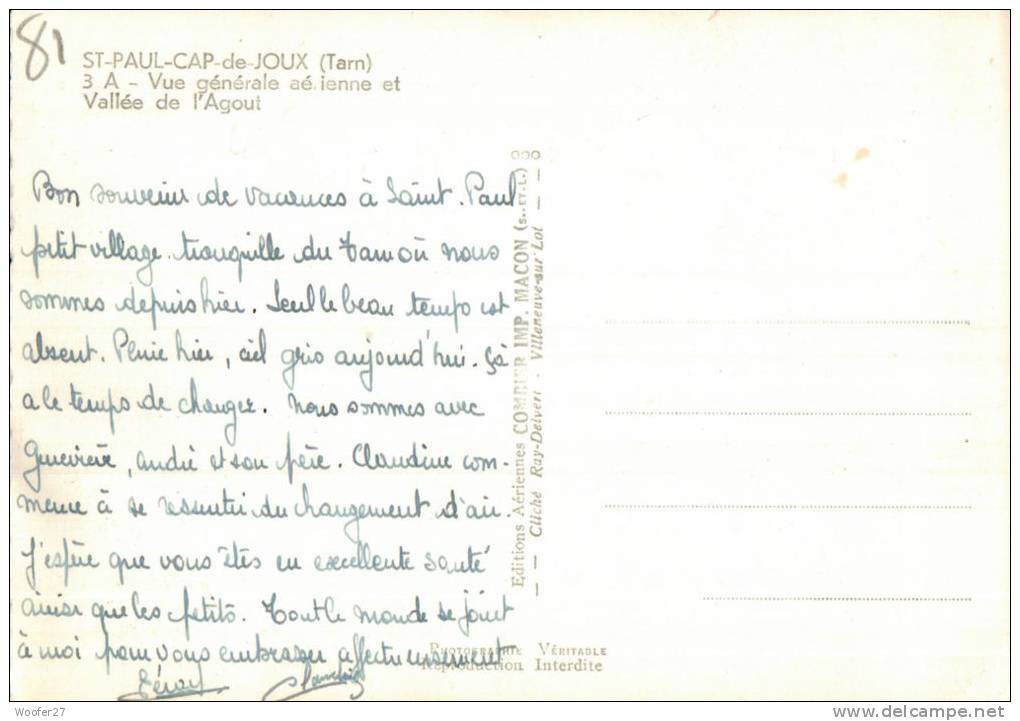 81
ST-PAUL-CAP-de-JOUX (Tarn)
3 A - Vue générale aérienne et
Vallée de l'Agout
Bon souvenir de vacances à Saint. Paul
petit village tranquille du Tarn où nous
sommes depuis hier. Seul le beau temps est
absent. Pluie hier, ciel gris aujourd'hui. Çà
a le temps de changer. Nous sommes avec
Geneviève, andré et son père. Claudine com-
mence à se ressentir du changement d'air.
J'espère que vous êtes en excellente santé
ainsi que les petits. Tout le monde se joint
à moi pour vous embrasser affectueusement
Editions Aériennes COMBIER IMP. MACON (S.-ET-L.) ooo
Cliché Ray-Delvert - Villeneuve-sur-Lot
PHOTOGRAPHIE VÉRITABLE
Reproduction Interdite
Woofer27
delcampe.net